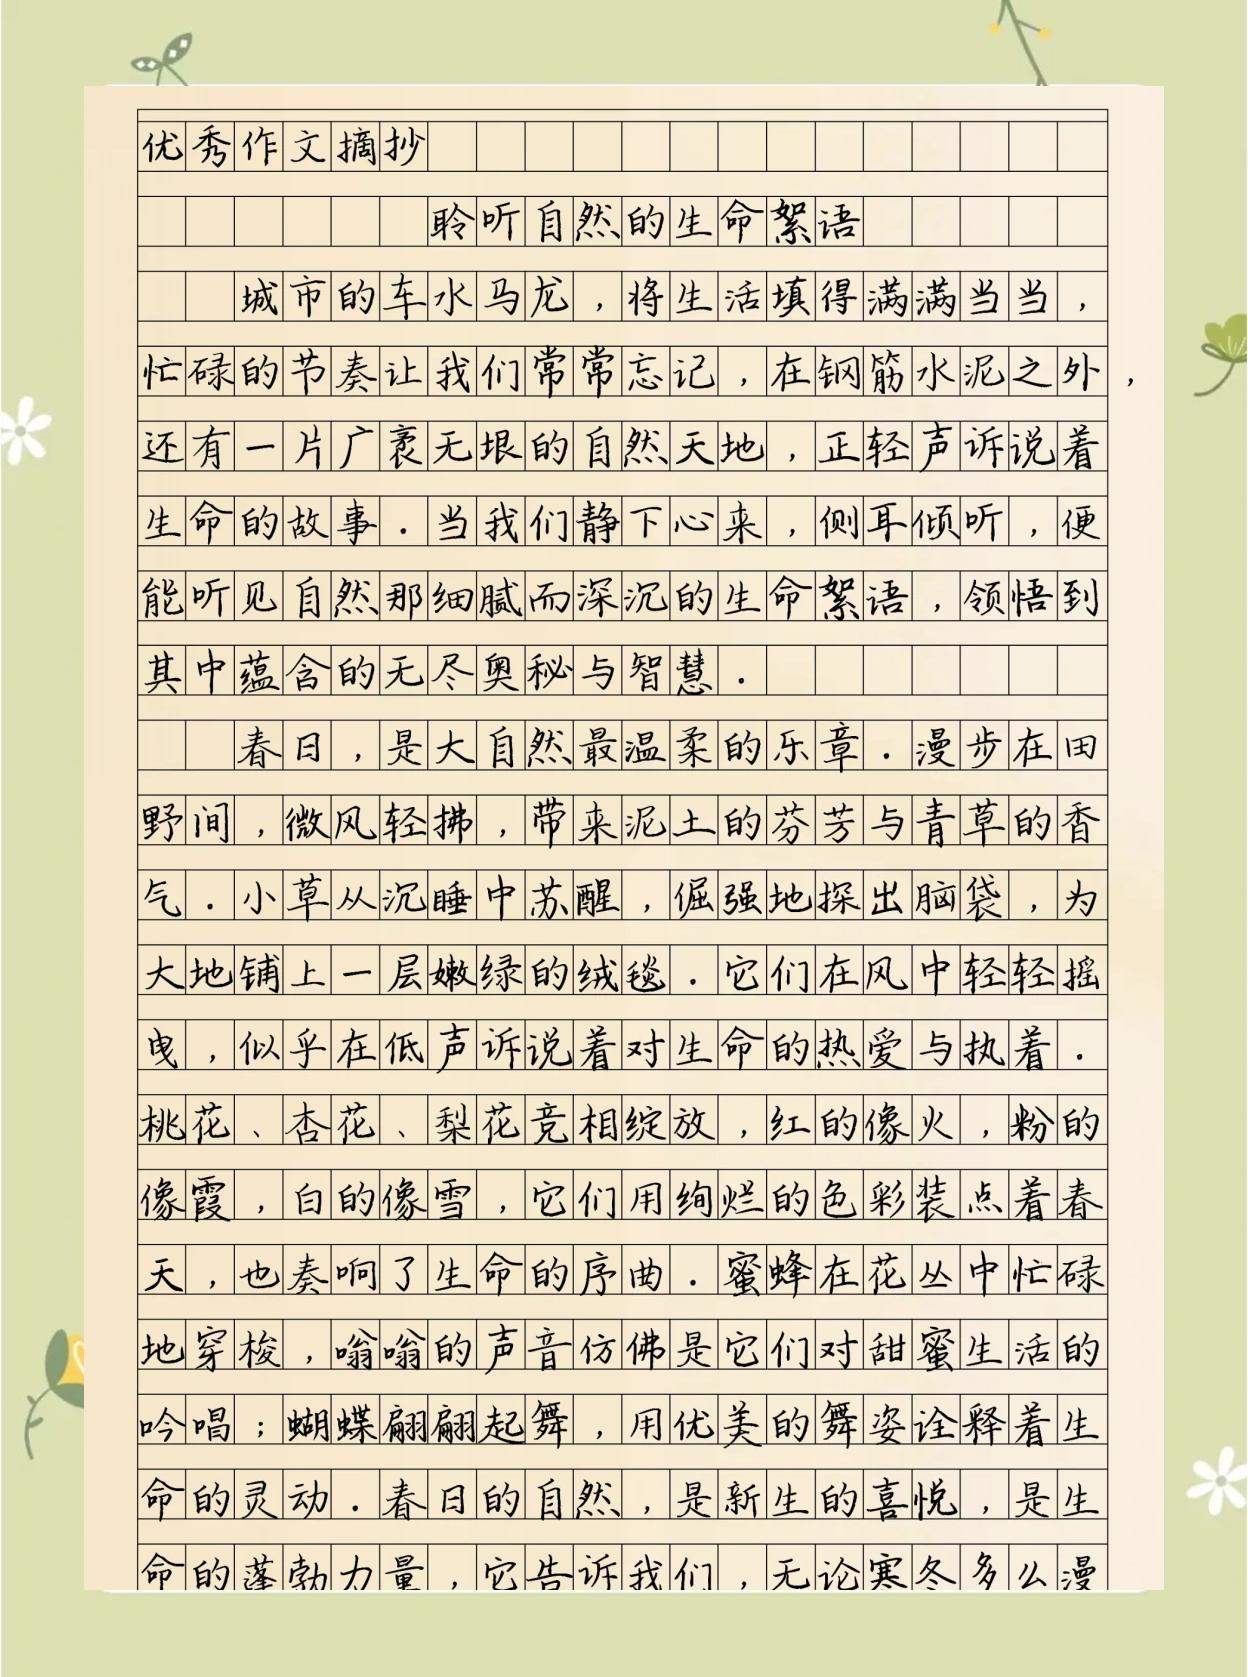 优秀作文摘抄
聆听自然的生命絮语
城市的车水马龙，将生活填得满满当当，
忙碌的节奏让我们常常忘记，在钢筋水泥之外，
还有一片广袤无垠的自然天地，正轻声诉说着
生命的故事．当我们静下心来，侧耳倾听，便
能听见自然那细腻而深沉的生命絮语，领悟到
其中蕴含的无尽奥秘与智慧．
春日，是大自然最温柔的乐章．漫步在田
野间，微风轻拂，带来泥土的芬芳与青草的香
气．小草从沉睡中苏醒，倔强地探出脑袋，为
大地铺上一层嫩绿的绒毯．它们在风中轻轻摇
曳，似乎在低声诉说着对生命的热爱与执着．
桃花、杏花、梨花竞相绽放，红的像火，粉的
像霞，白的像雪，它们用绚烂的色彩装点着春
天，也奏响了生命的序曲．蜜蜂在花丛中忙碌
地穿梭，嗡嗡的声音仿佛是它们对甜蜜生活的
吟唱；蝴蝶翩翩起舞，用优美的舞姿诠释着生
命的灵动．春日的自然，是新生的喜悦，是生
命的蓬勃力量，它告诉我们，无论寒冬多么漫